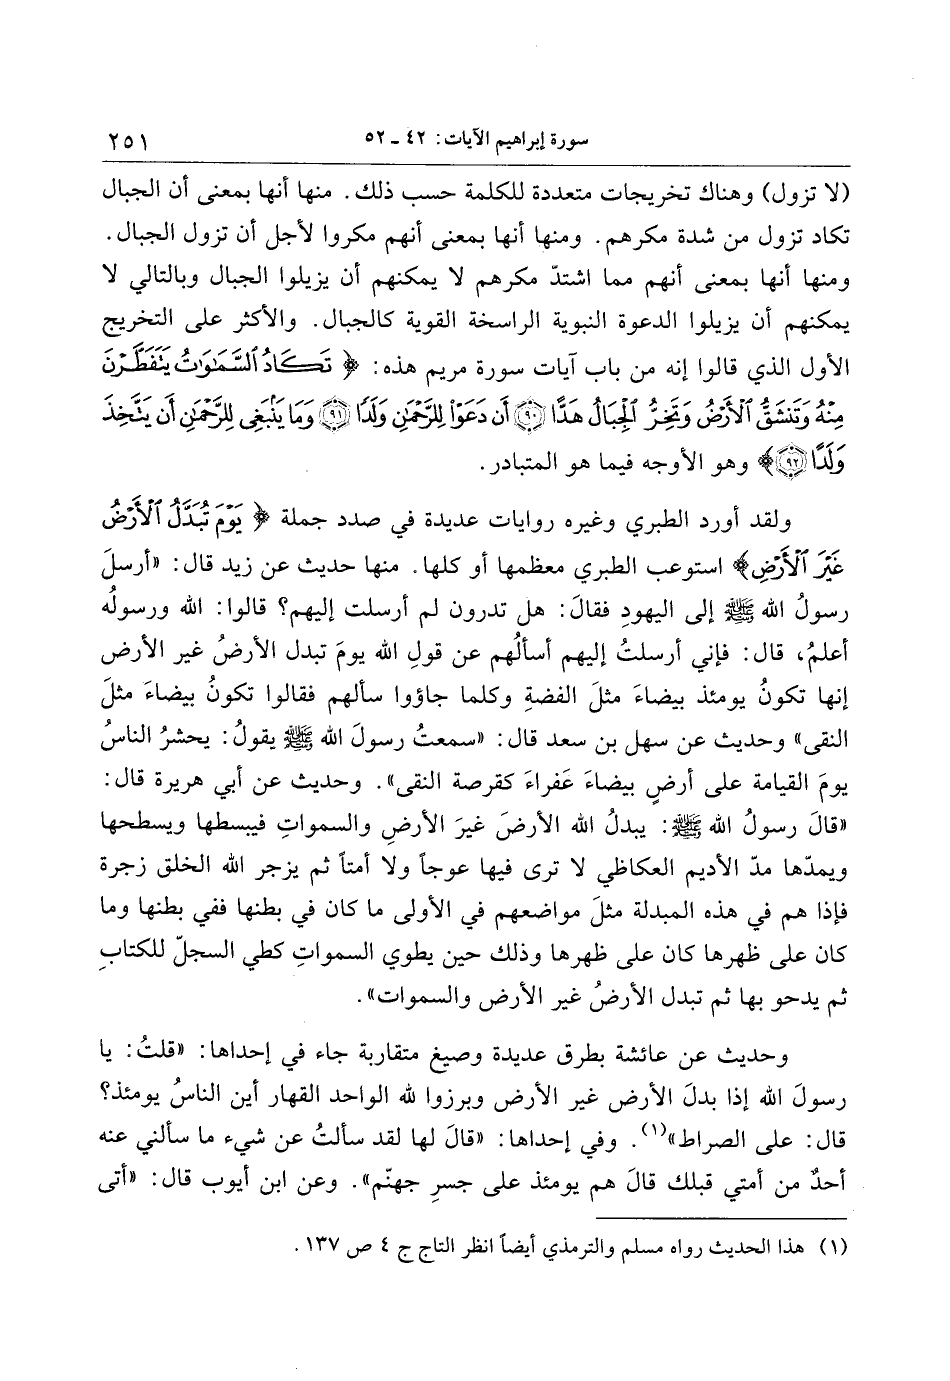 سورة إبراهيم الآيات: ٤٢ ـ ٥٢ ٢٥١
(لا تزول) وهناك تخريجات متعددة للكلمة حسب ذلك. منها أنها بمعنى أن الجبال
تكاد تزول من شدة مكرهم. ومنها أنها بمعنى أنهم مكروا لأجل أن تزول الجبال.
ومنها أنها بمعنى أنهم مما اشتدّ مكرهم لا يمكنهم أن يزيلوا الجبال وبالتالي لا
يمكنهم أن يزيلوا الدعوة النبوية الراسخة القوية كالجبال. والأكثر على التخريج
الأول الذي قالوا إنه من باب آيات سورة مريم هذه: ﴿تَكَادُ ٱلسَّمَٰوَٰتُ يَتَفَطَّرْنَ
مِنْهُ وَتَنشَقُّ ٱلْأَرْضُ وَتَخِرُّ ٱلْجِبَالُ هَدًّا ۝٩٠ أَن دَعَوْا۟ لِلرَّحْمَٰنِ وَلَدًا ۝٩١ وَمَا يَنۢبَغِى لِلرَّحْمَٰنِ أَن يَتَّخِذَ
وَلَدًا ۝٩٢﴾ وهو الأوجه فيما هو المتبادر.
ولقد أورد الطبري وغيره روايات عديدة في صدد جملة ﴿يَوْمَ تُبَدَّلُ ٱلْأَرْضُ
غَيْرَ ٱلْأَرْضِ﴾ استوعب الطبري معظمها أو كلها. منها حديث عن زيد قال: «أرسلَ
رسولُ الله ﷺ إلى اليهودِ فقالَ: هل تدرون لم أرسلت إليهم؟ قالوا: الله ورسولُه
أعلمُ، قال: فإني أرسلتُ إليهم أسألُهم عن قولِ الله يومَ تبدل الأرضُ غير الأرض
إنها تكونُ يومئذ بيضاءَ مثلَ الفضةِ وكلما جاؤوا سألهم فقالوا تكونُ بيضاءَ مثلَ
النقى» وحديث عن سهل بن سعد قال: «سمعتُ رسولَ الله ﷺ يقولُ: يحشرُ الناسُ
يومَ القيامة على أرضٍ بيضاءَ عَفراءَ كقرصة النقى». وحديث عن أبي هريرة قال:
«قالَ رسولُ الله ﷺ: يبدلُ الله الأرضَ غيرَ الأرضِ والسمواتِ فيبسطها ويسطحها
ويمدّها مدّ الأديم العكاظي لا ترى فيها عوجاً ولا أمتاً ثم يزجر الله الخلق زجرة
فإذا هم في هذه المبدلة مثلَ مواضعهم في الأولى ما كان في بطنها ففي بطنها وما
كان على ظهرها كان على ظهرها وذلك حين يطوي السمواتِ كطي السجلّ للكتابِ
ثم يدحو بها ثم تبدل الأرضُ غير الأرض والسموات».
وحديث عن عائشة بطرق عديدة وصيغ متقاربة جاء في إحداها: «قلتُ: يا
رسولَ الله إذا بدلَ الأرض غير الأرض وبرزوا لله الواحد القهار أين الناسُ يومئذ؟
قال: على الصراط»(١). وفي إحداها: «قالَ لها لقد سألتُ عن شيء ما سألني عنه
أحدٌ من أمتي قبلك قالَ هم يومئذ على جسرِ جهنّم». وعن ابن أيوب قال: «أتى
(١) هذا الحديث رواه مسلم والترمذي أيضاً انظر التاج ج ٤ ص ١٣٧.